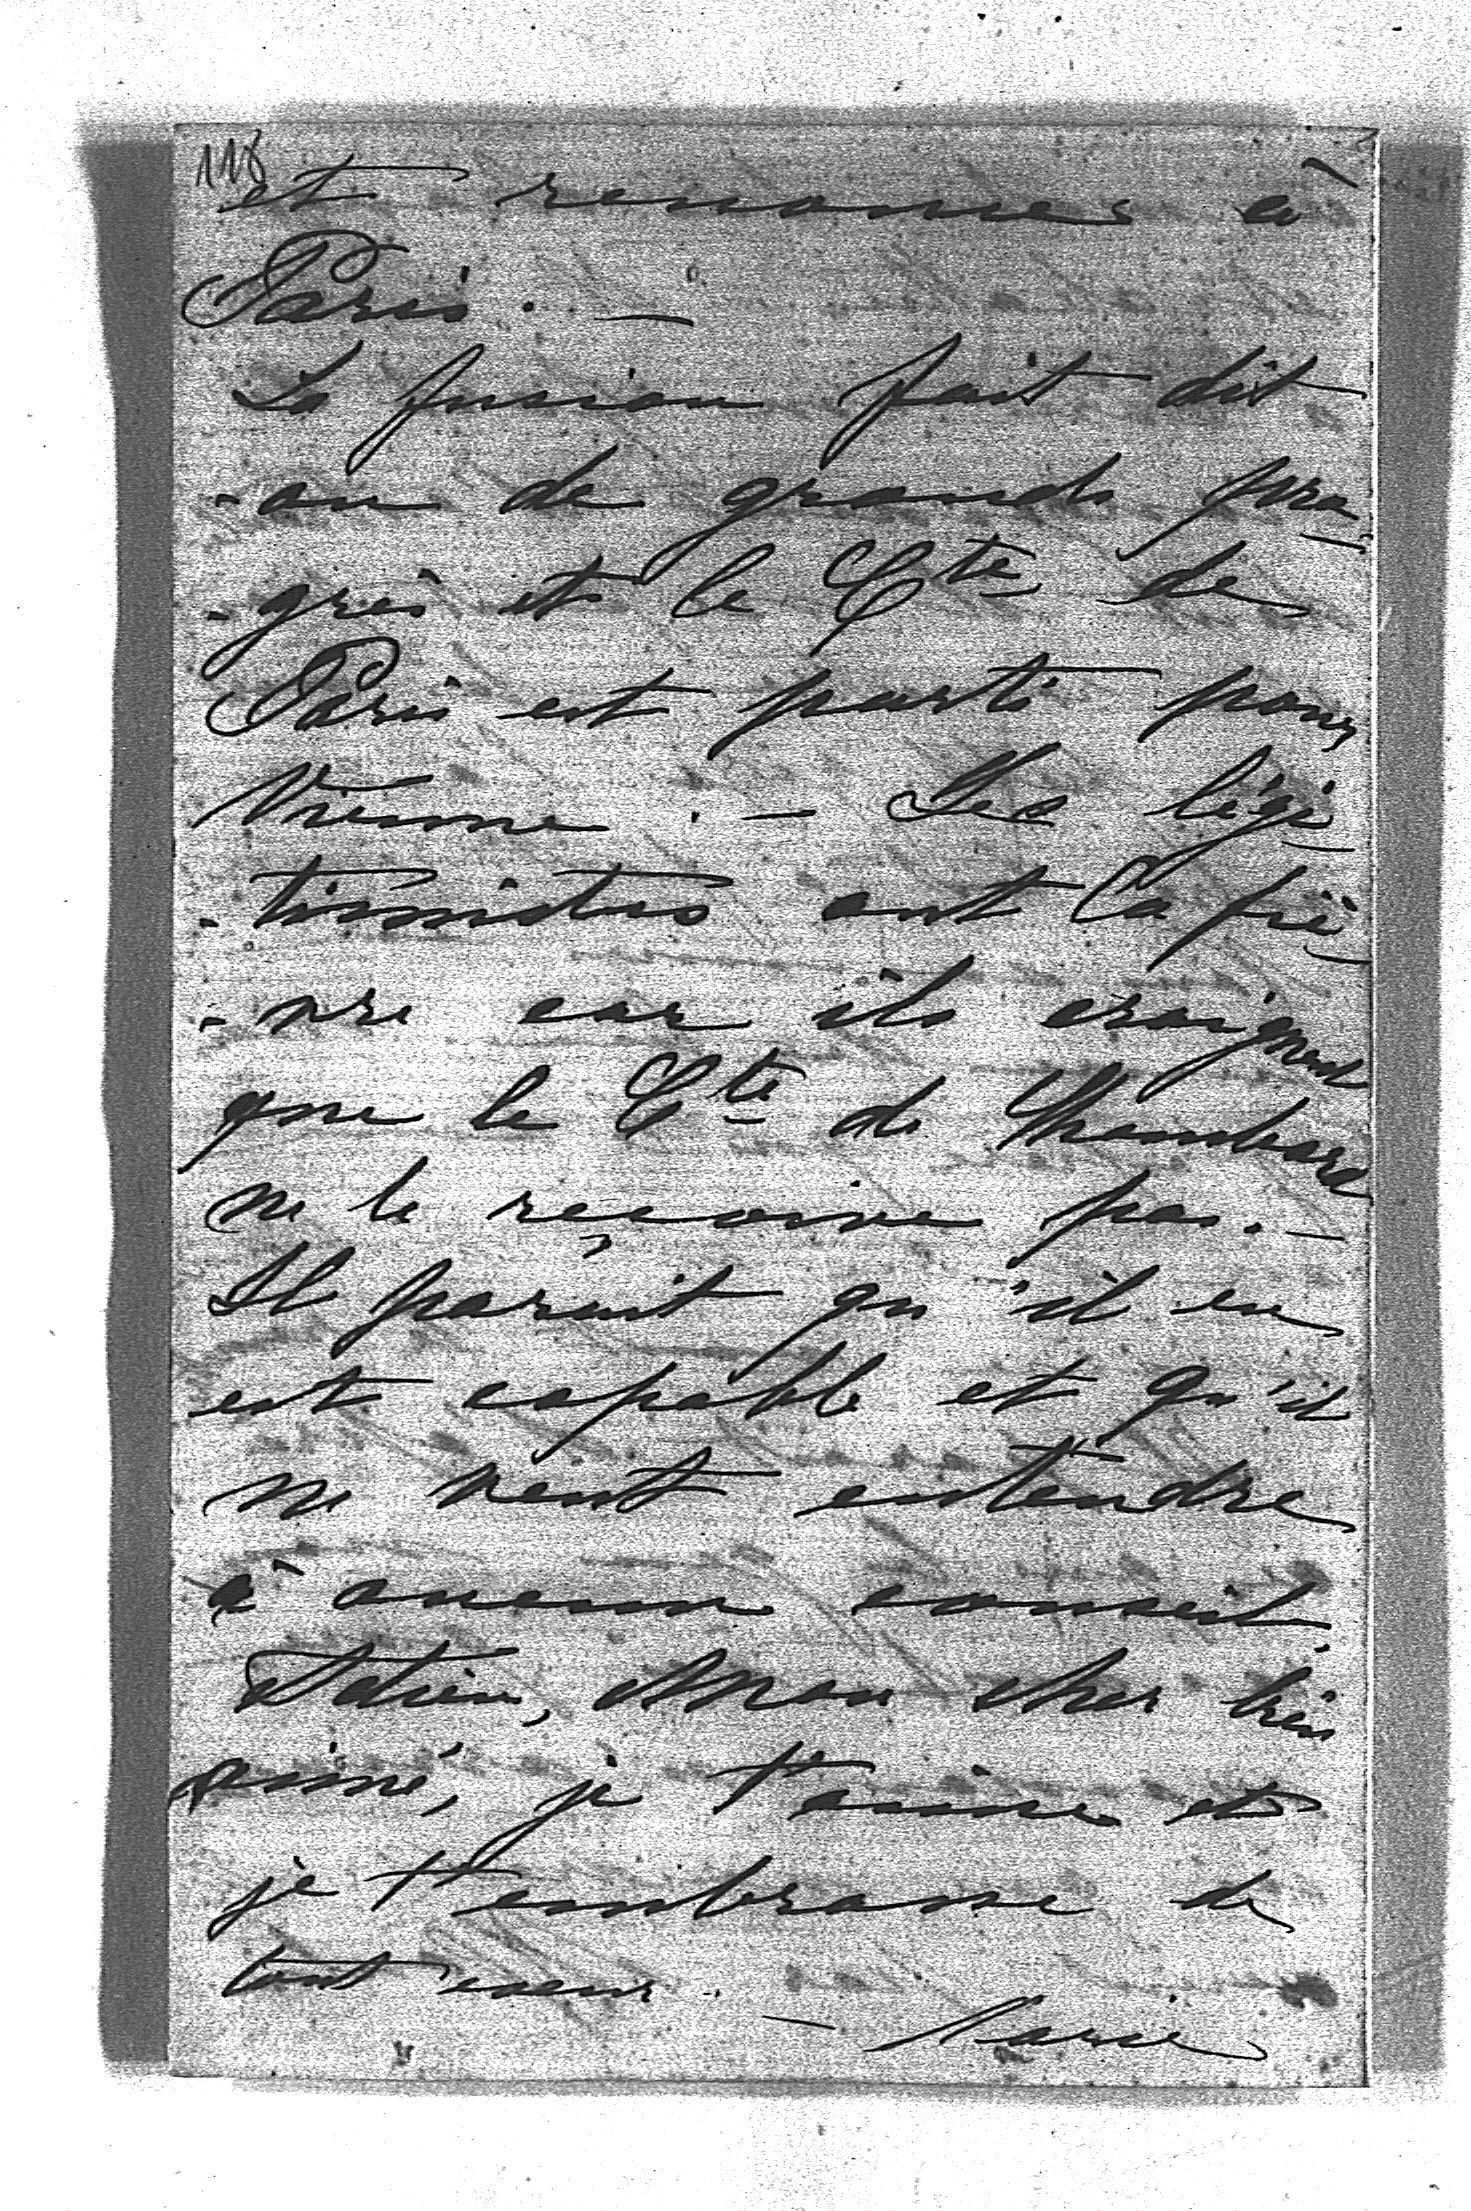 118
et renonces à
Paris. —
La fusion fait dit
-on de grands pro-
-grès et le Cte de
Paris est parti pour
Vienne. — Les légi-
-timistes ont la fiè-
-vre car ils craignent
que le Cte de Chambord
ne le reçoive pas. —
Il parait qu'il en
est capable et qu'il
ne veut entendre
à aucun conseil.
Adieu, Mon cher bien
aimé, je t'aime et
je t'embrasse de
tout cœur.
— Marie